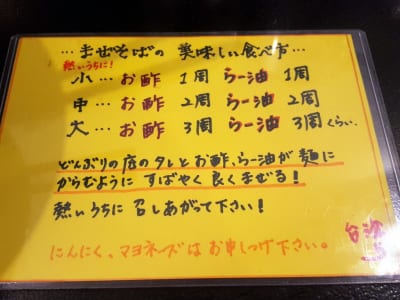 …まぜそばの 美味しい食べ方…
熱いうちに!
小…お酢 1周 らー油 1周
中…お酢 2周 らー油 2周
大…お酢 3周 らー油 3周くらい。
どんぶりの底のタレとお酢、らー油が麺に
からむように すばやく良くまぜる!
熱いうちに召しあがって下さい!
にんにく、マヨネーズはお申しつけ下さい。